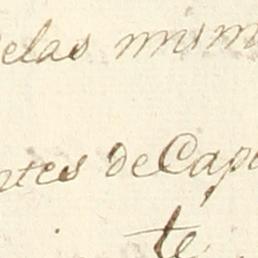 delas mism
ntes de Capi
te